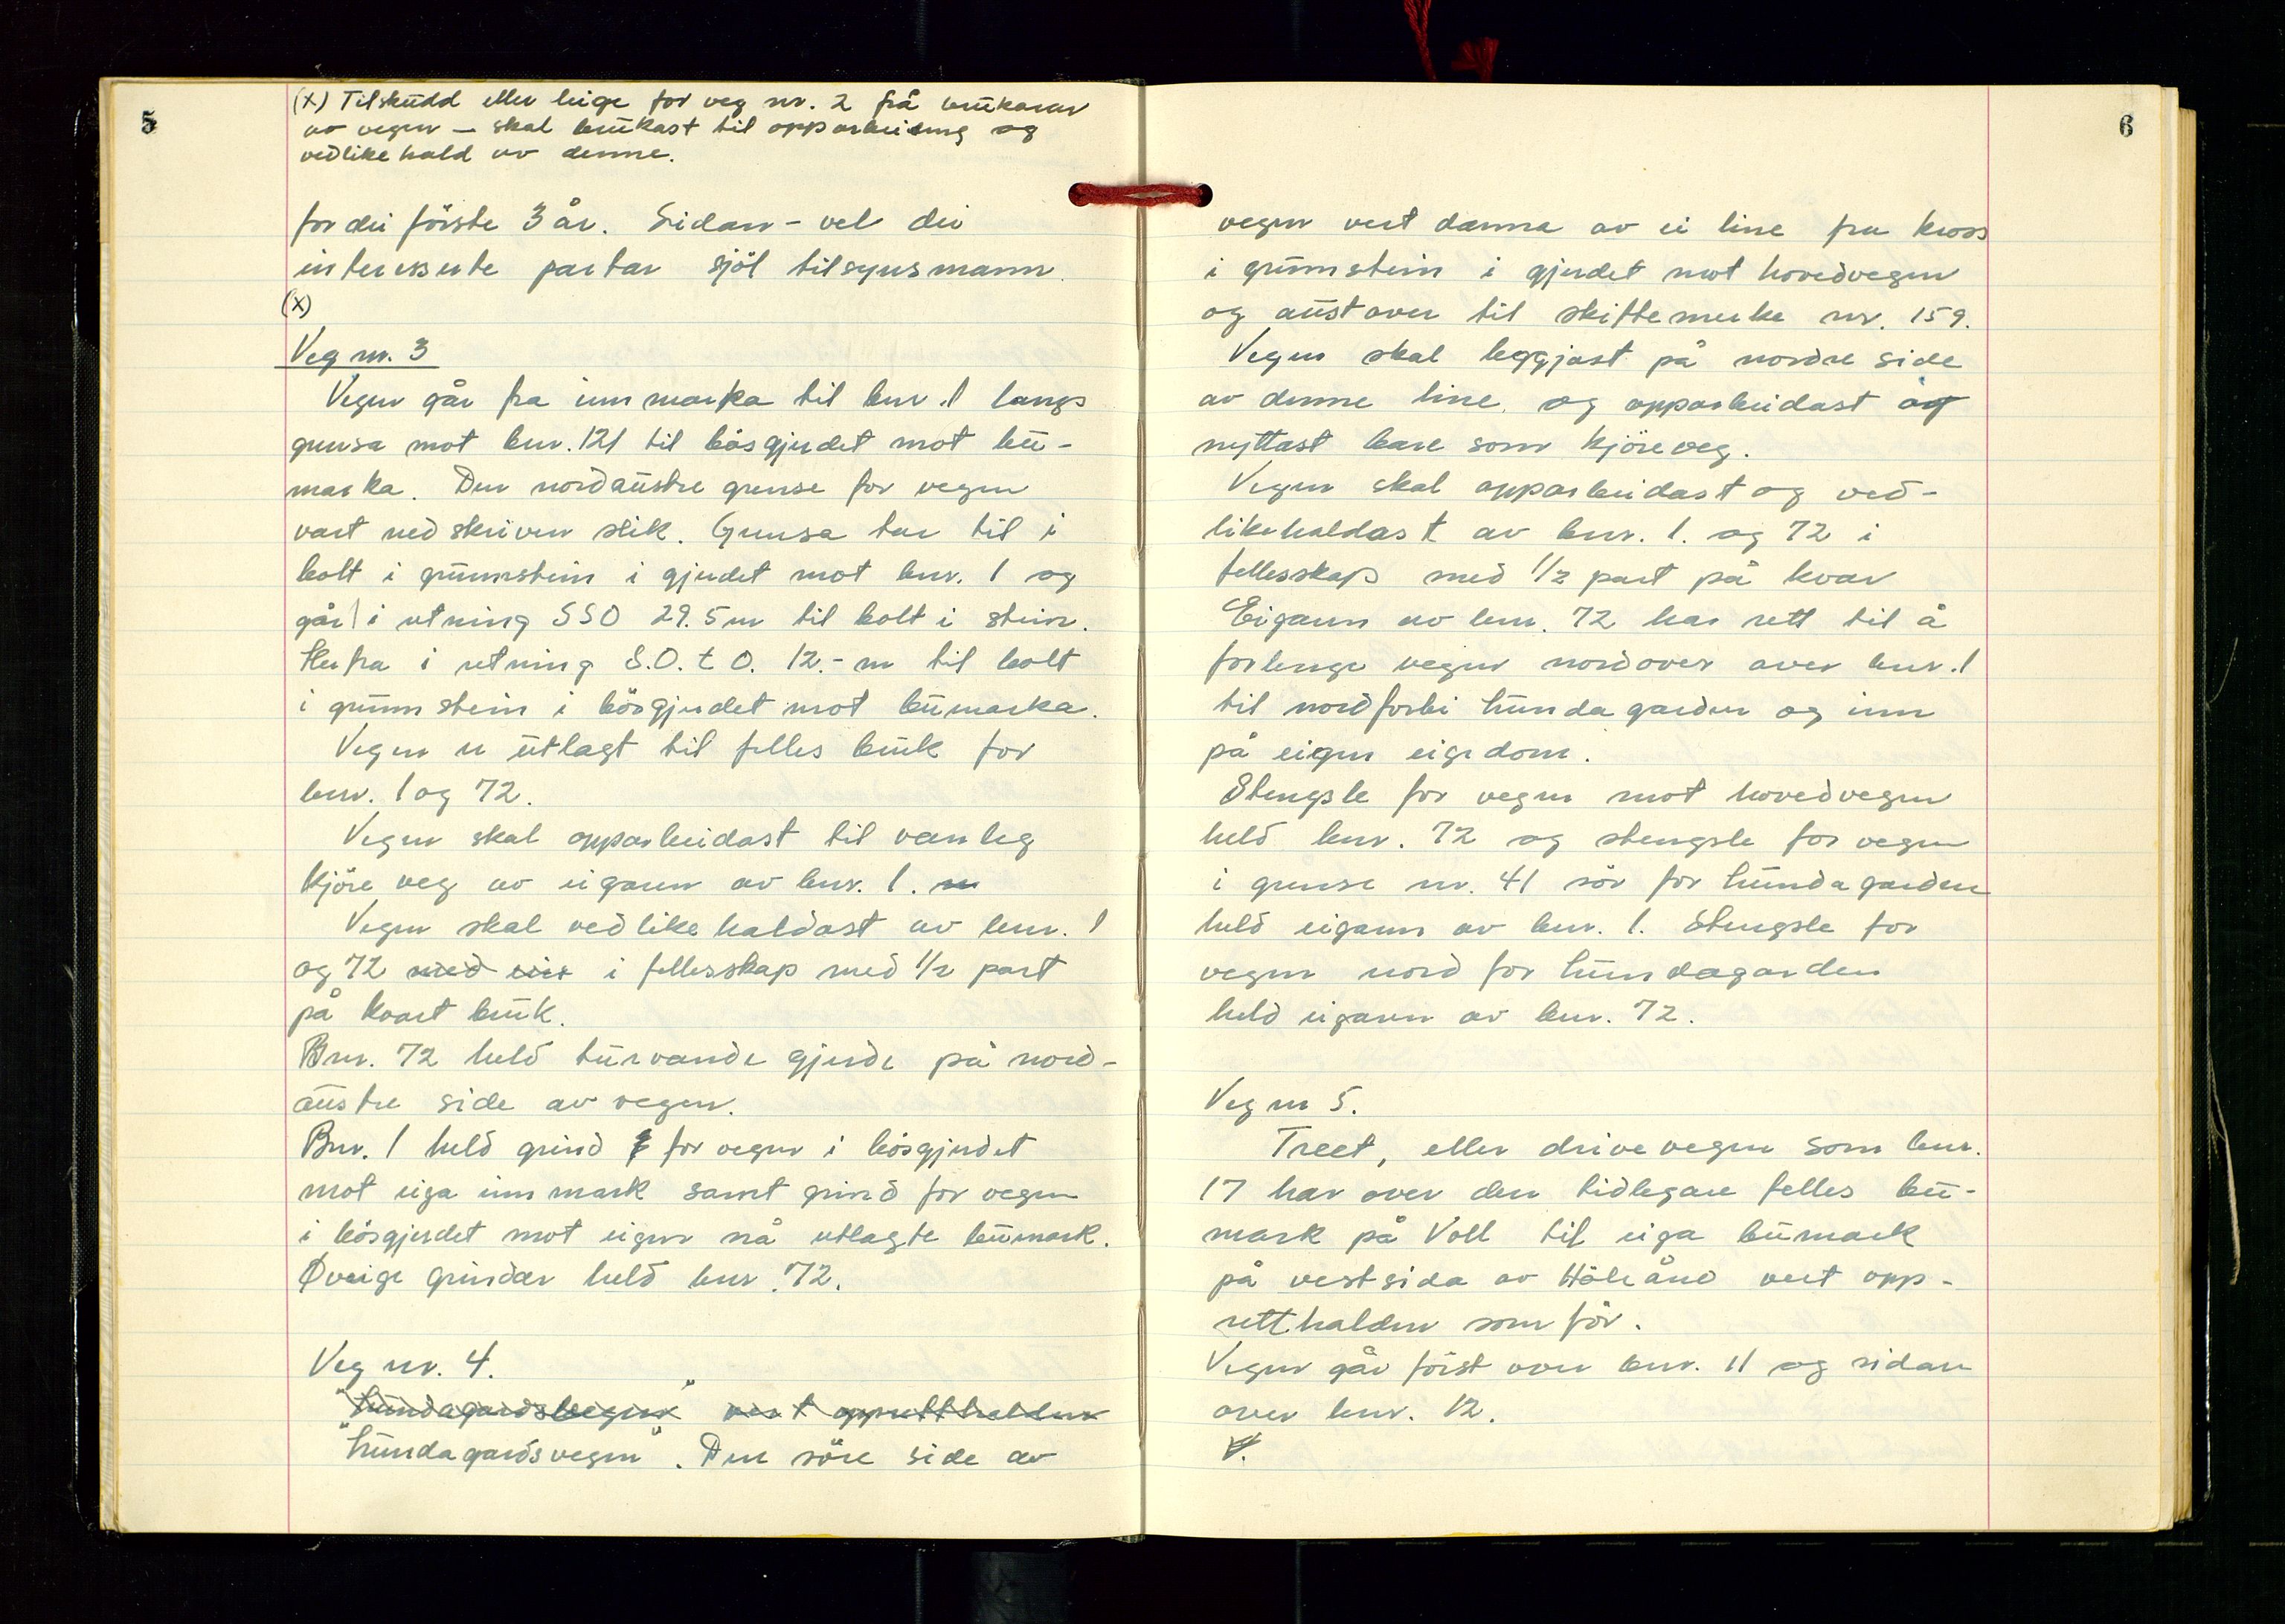 5
(x) Tilskudd eller leige for veg nr. 2 frå brukarar
av vegen – skal brukast til opparbeiding og
vedlikehald av denne.
for dei förste 3 år. Sidan – vel dei
interesserte partar sjöl tilsynsmann.
(x)
Veg nr. 3
Vegen går fra innmarka til bnr. 1 langs
grensa mot bnr. 121 til bösgjerdet mot bu-
marka. Den nordaustre grense for vegen
vart nedskriven slik. Grensa tar til i
bolt i grunnstein i gjerdet mot bnr. 1 og
går i retning SSO 29.5m til bolt i stein.
Herfra i retning S.O. t O. 12.- m til bolt
i grunnstein i bösgjerdet mot bumarka.
Vegen er utlagt til felles bruk for
bnr. 1 og 72.
Vegen skal opparbeidast til vanleg
kjöreveg av eigaren av bnr. 1.
Vegen skal vedlikehaldast av bnr. 1
og 72 med ein i fellesskap med 1/2 part
på kvart bruk.
Bnr. 72 held turvande gjerde på nord-
austre side av vegen.
Bnr. 1 held grind for vegen i bösgjerdet
mot eiga innmark samt grind for vegen
i bösgjerdet mot eigen nå utlagte bumark.
Øvrige grinder held bnr. 72.
Veg nr. 4.
"Hundagardsvegen" vert oppretthalden
"Hundagardsvegen". Den söre side av
6
vegen vert danna av ei line fra kross
i grunnstein i gjerdet mot hovedvegen
og austover til skiftemerke nr. 159.
Vegen skal leggjast på nordre side
av denne line og opparbeidast og
nyttast bare som kjöreveg.
Vegen skal opparbeidast og ved-
likehaldast av bnr. 1. og 72 i
fellesskap med 1/2 part på kvar
Eigaren av bnr. 72 har rett til å
forlenge vegen nordover over bnr. 1
til nordforbi Hundagarden og inn
på eigen eigedom.
Stengsle for vegen mot hovedvegen
held bnr. 72 og stengsle for vegen
i grense nr. 41 sör for Hundagarden
held eigaren av bnr. 1. Stengsle for
vegen nord for Hundagarden
held eigaren av bnr. 72.
Veg nr 5.
Treet, eller drivevegen som bnr.
17 har over den tidlegare felles bu-
mark på Voll til eiga bumark
på vestsida av Håråna vert opp-
retthalden som för.
Vegen går först over bnr. 11 og sidan
over bnr. 12.
V.